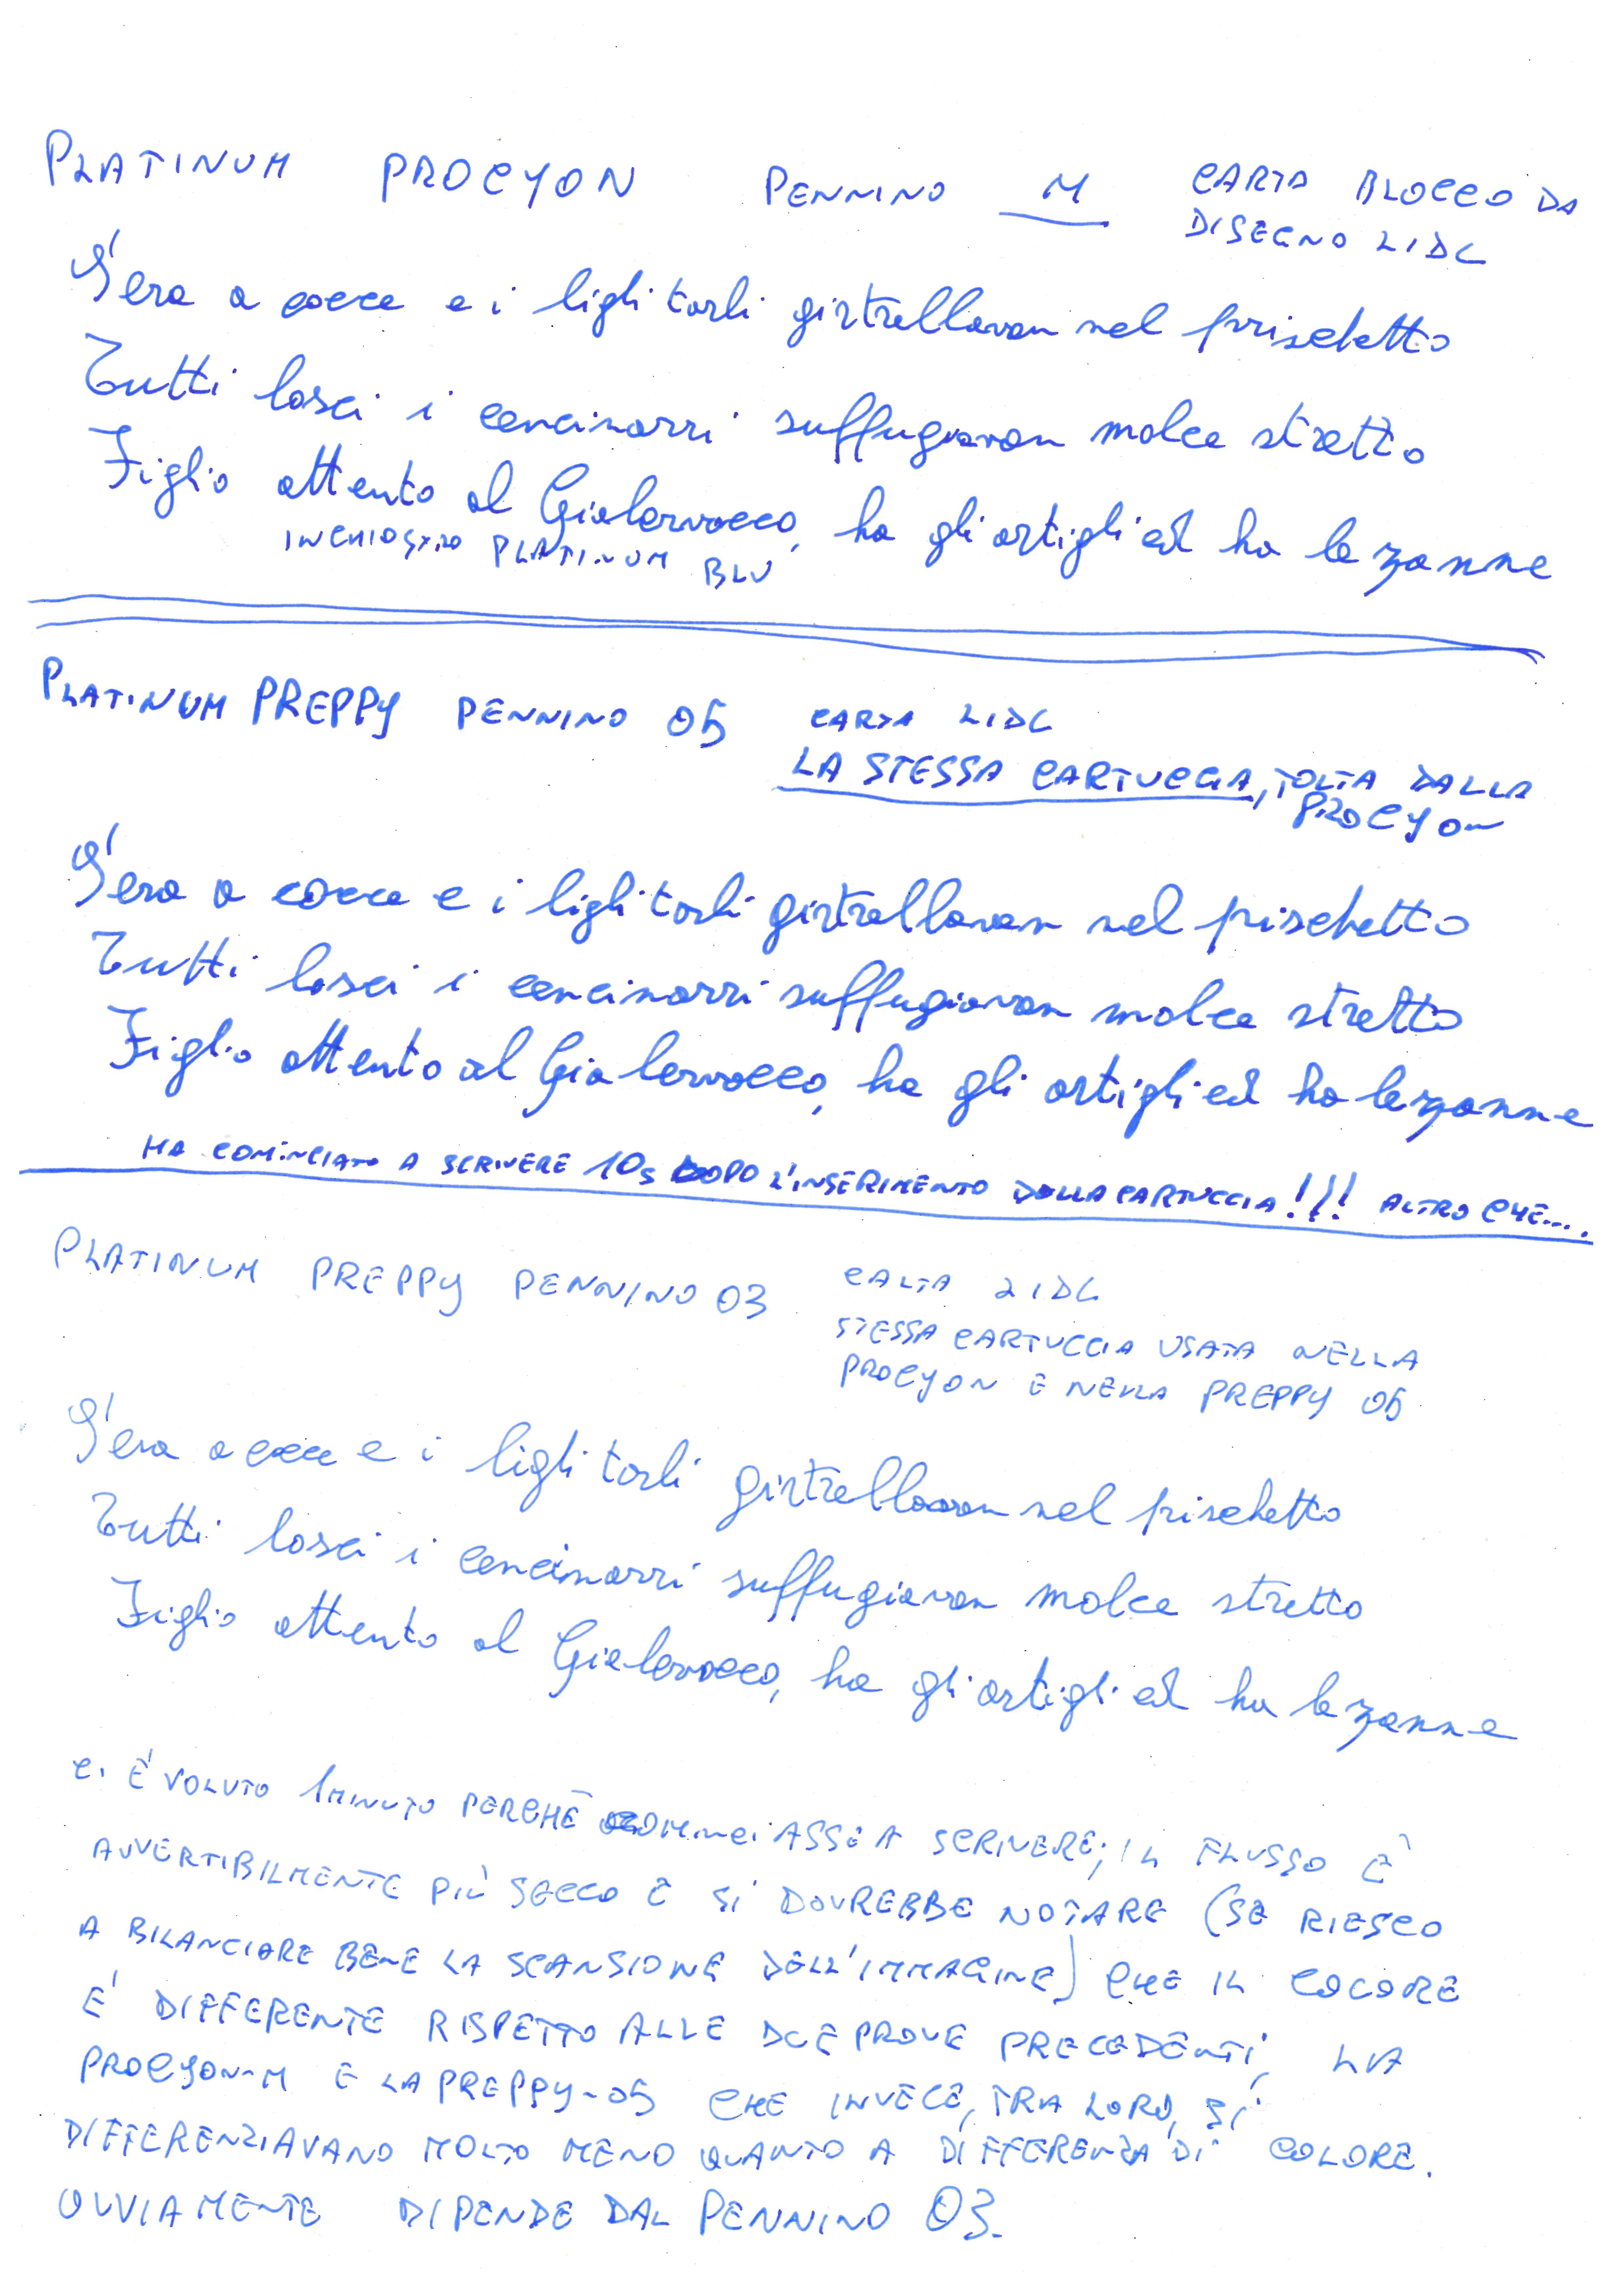 PLATINUM PROCYON PENNINO M CARTA BLOCCO DA
DISEGNO LIDL
S'era a cocce e i ligli tarli girtrellavan nel prischetto
Tutti losci i cencinarri suffugiavan molce stretto
Figlio attento al Gialarvocco, ha gli artigli ed ha le zanne
INCHIOSTRO PLATINUM BLU
PLATINUM PREPPY PENNINO 05 CARTA LIDL
LA STESSA CARTUCCIA, TOLTA DALLA
PROCYON
S'era a cocce e i ligli tarli girtrellavan nel pischetto
Tutti losci i cencinarri suffugiavan molce stretto
Figlio attento al Gialarvocco, ha gli artigli ed ha le zanne
HA COMINCIATO A SCRIVERE 10s DOPO L'INSERIMENTO DELLA CARTUCCIA!!! ALTRO CHE....
PLATINUM PREPPY PENNINO 03 CALTA LIDL
STESSA CARTUCCIA USATA NELLA
PROCYON E NELLA PREPPY 05
S'era a cocce e i ligli tarli girtrellavan nel pischetto
Tutti losci i cencinarri suffugiavan molce stretto
Figlio attento al Gialarvocco, ha gli artigli ed ha le zanne
C'È VOLUTO 1 MINUTO PERCHÉ COMINCIASSE A SCRIVERE; IL FLUSSO È
AVVERTIBILMENTE PIÙ SECCO E SI DOVREBBE NOTARE (SE RIESCO
A BILANCIARE BENE LA SCANSIONE DELL'IMMAGINE) CHE IL COLORE
E' DIFFERENTE RISPETTO ALLE DUE PROVE PRECEDENTI, LA
PROCYON-M E LA PREPPY-05 CHE INVECE, TRA LORO, SI
DIFFERENZIAVANO MOLTO MENO QUANTO A DIFFERENZA DI COLORE.
OVVIAMENTE DIPENDE DAL PENNINO 03.